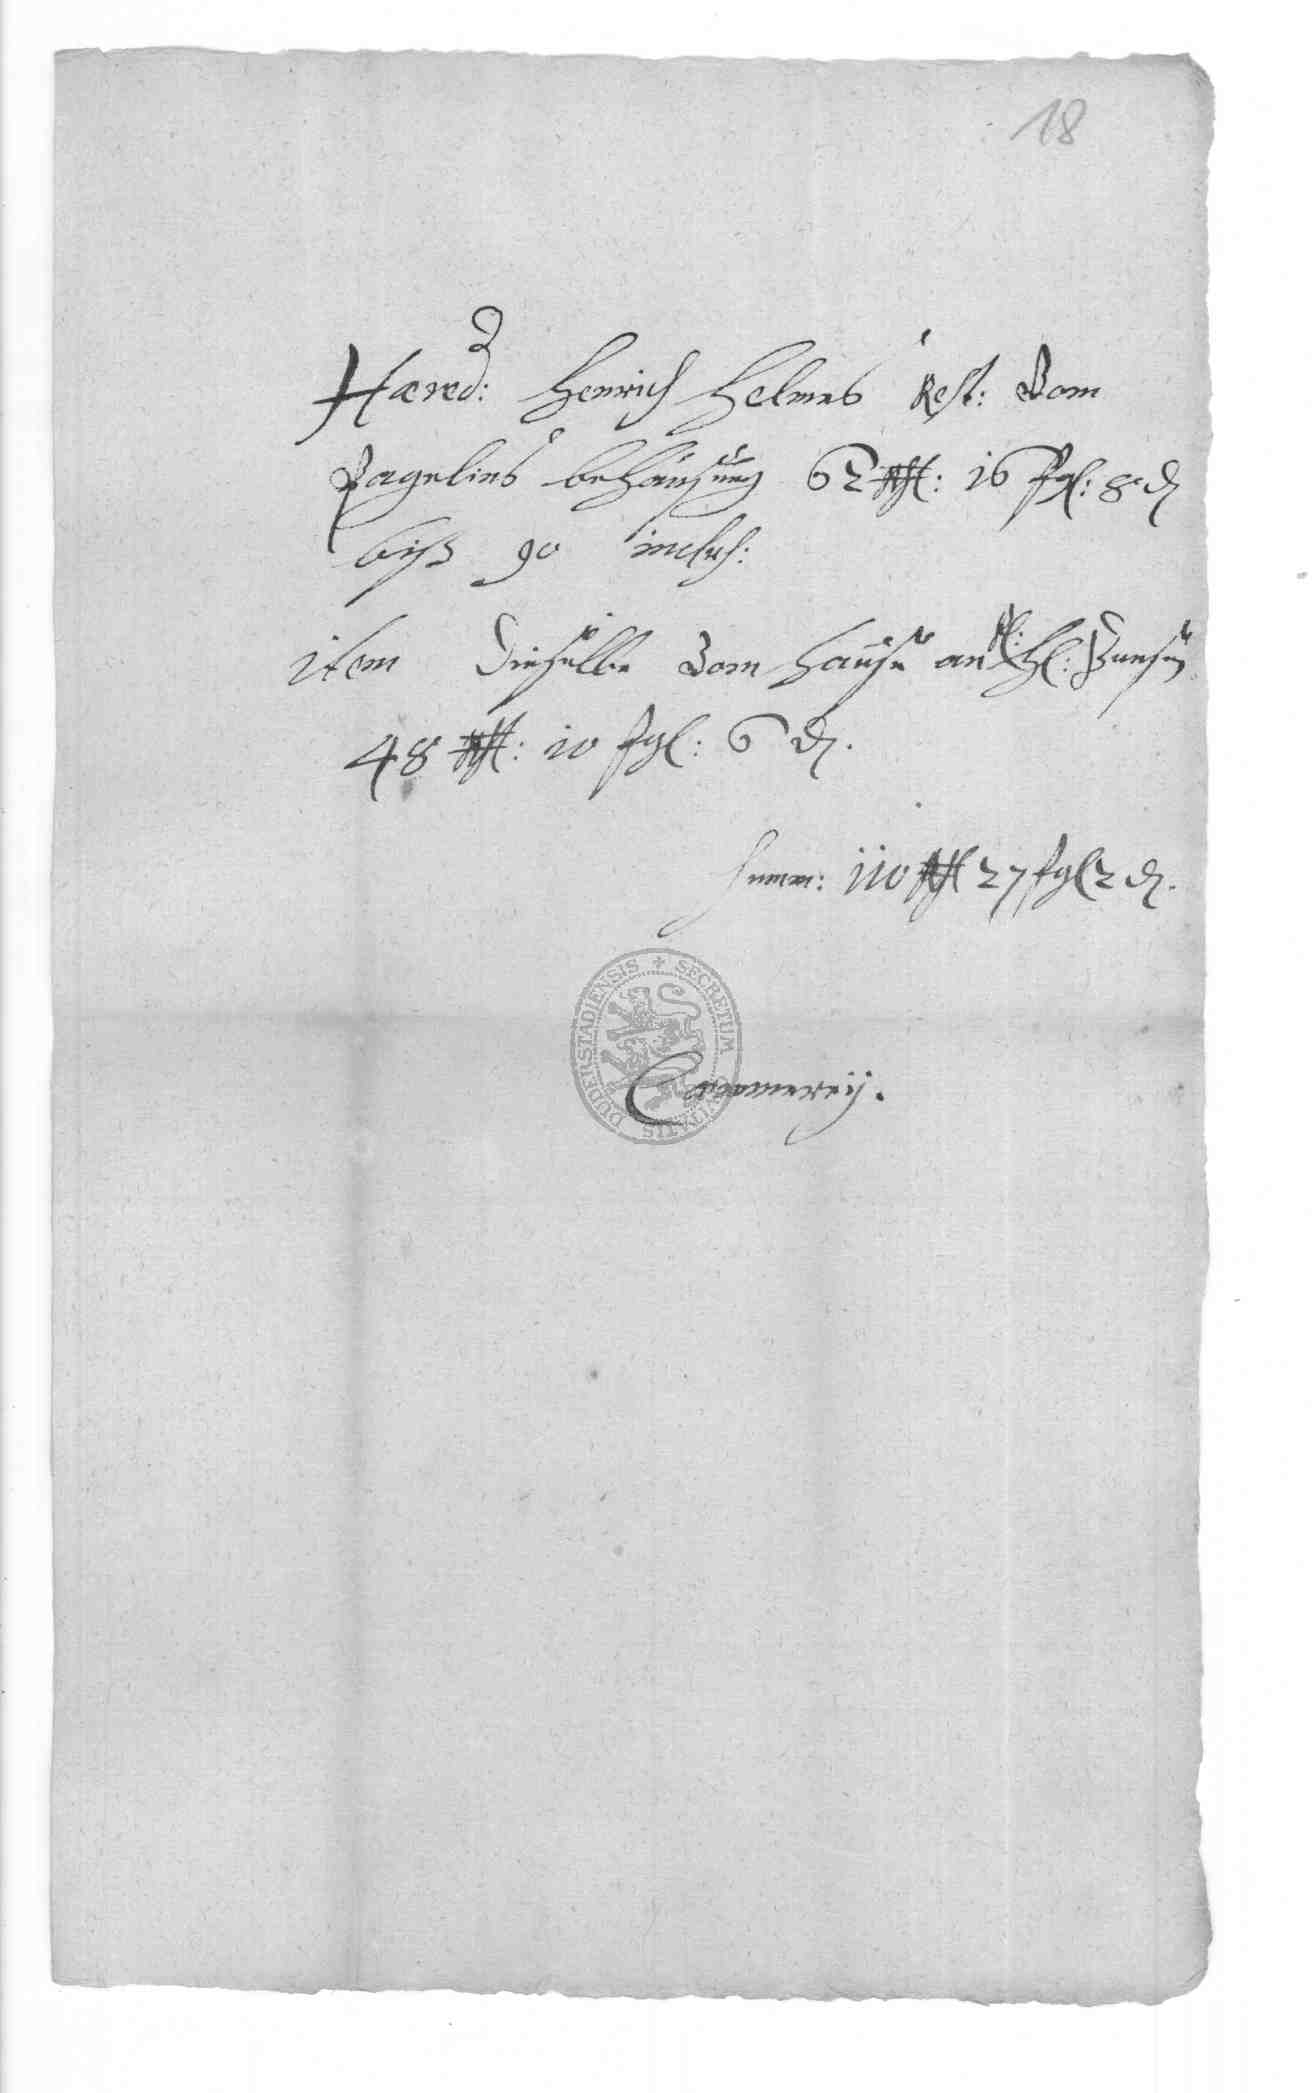 18
Hæred: Henrich Helmes Rest: Vom
Pagelins behausung 62 Mk: 16 ßgl: 8 d
biß 90 inclus:
item dieselbe Vom hause an H:
48 Mk: 10 ßgl: 6 d.
Summ: 110 Mk 27 ßgl 2 d.
SECRETUM CIVITATIS DUDERSTADIENSIS
Cammerey.